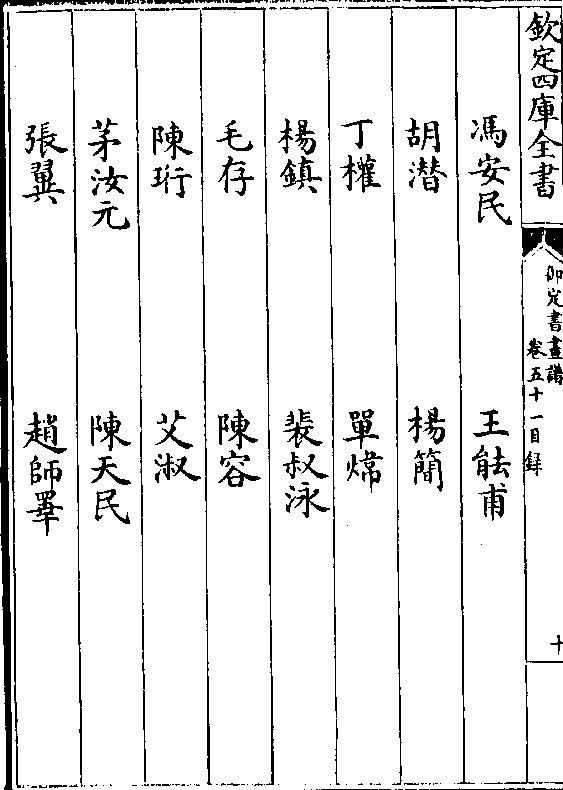 欽定四庫全書
御定書畫譜
卷五十一目録
十
馮安民 王能甫
胡潛 楊簡
丁權 單煒
楊鎮 裴叔泳
毛存 陳容
陳珩 艾淑
茅汝元 陳天民
張翼 趙師睪